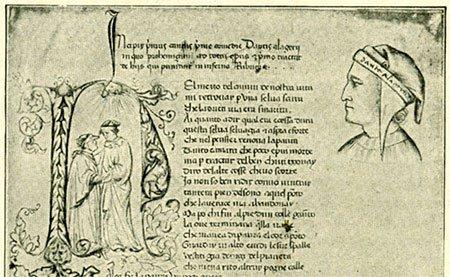 Incipit p'mus cantus p'me comedie Dantis alagerij
in quo prohemizatur ad totum opus et p'mo tractat
de hiis qui puniuntur in inferno Rubrica
NEl mezo del camin de nostra vita
mi retrovai p una selva scura
che la via era smarita
Ai quanto a dir qual era cossa dura
questa selva selvagia e aspra e forte
che nel penser renova la paura
Tanto amara che poco e piu morte
ma p tractar del ben chi trovai
diro del altre cosse che scorte
Jo non so ben redir como vintrai
tant era pien del sono a quel ponto
che la verace via abandonay
Ma po chi fui al pie dun colle gionto
la ove terminava quella
che mavea di paura el cor ponto
Guardai in alto e vidi le sue spalle
vestite gia di ragi del pianeta
che mena altrui per ogne calle
Alor fu la paura
DANTE